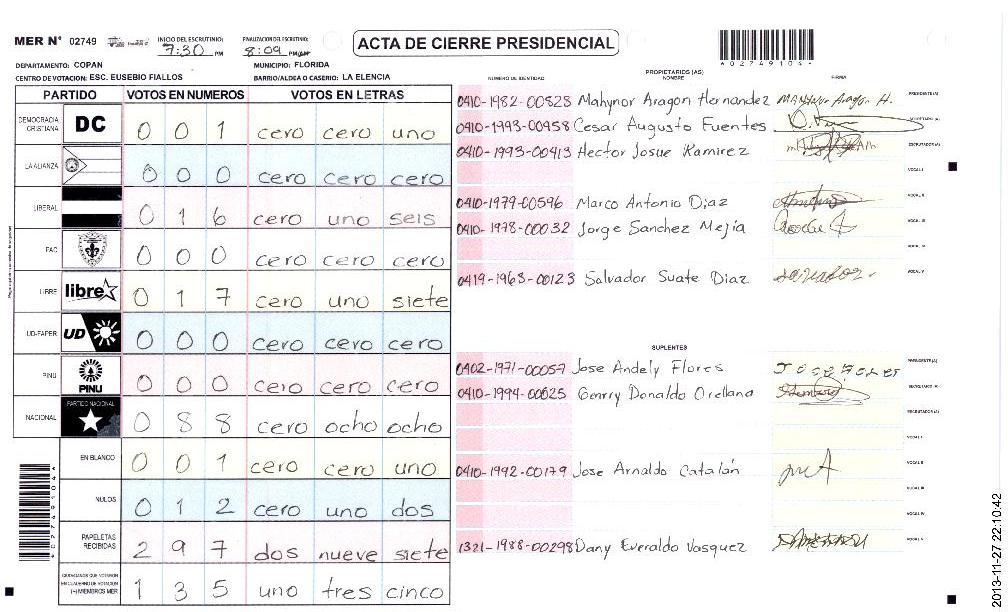 MER N° 02749
INICIO DEL ESCRUTINIO:
7:30 PM
FINALIZACION DEL ESCRUTINIO:
8:09 PM/AM
ACTA DE CIERRE PRESIDENCIAL
*02749104*
DEPARTAMENTO: COPAN
MUNICIPIO: FLORIDA
CENTRO DE VOTACION: ESC. EUSEBIO FIALLOS
BARRIO/ALDEA O CASERIO: LA ELENCIA
PARTIDO VOTOS EN NUMEROS VOTOS EN LETRAS
DEMOCRACIA CRISTIANA DC 0 0 1 cero cero uno
LA ALIANZA 0 0 0 cero cero cero
LIBERAL 0 1 6 cero uno seis
PAC 0 0 0 cero cero cero
LIBRE libre 0 1 7 cero uno siete
UD-FAPER UD 0 0 0 cero cero cero
PINU PINU 0 0 0 cero cero cero
NACIONAL PARTIDO NACIONAL 0 8 8 cero ocho ocho
EN BLANCO 0 0 1 cero cero uno
NULOS 0 1 2 cero uno dos
PAPELETAS RECIBIDAS 2 9 7 dos nueve siete
CIUDADANOS QUE VOTARON EN CUADERNO DE VOTACION (+) MIEMBROS MER 1 3 5 uno tres cinco
*02749104*
NUMERO DE IDENTIDAD PROPIETARIOS (AS) NOMBRE FIRMA
0410-1982-00828 Mahynor Aragon Hernandez Mahynor Aragon H. PRESIDENTE(A)
0410-1993-00958 Cesar Augusto Fuentes SECRETARIO(A)
0410-1993-00413 Hector Josue Ramirez ESCRUTADOR(A)
VOCAL I
0410-1979-00596 Marco Antonio Diaz VOCAL II
0410-1978-00032 Jorge Sanchez Mejía VOCAL III
VOCAL IV
0419-1963-00123 Salvador Suate Diaz VOCAL V
SUPLENTES
0402-1971-00057 Jose Andely Flores PRESIDENTE(A)
0410-1994-00625 Genrry Donaldo Orellana SECRETARIO(A)
ESCRUTADOR(A)
VOCAL I
0410-1992-00179 Jose Arnaldo Catalán VOCAL II
VOCAL III
VOCAL IV
1321-1988-00298 Dany Everaldo Vasquez VOCAL V
2013-11-27 22:10:42